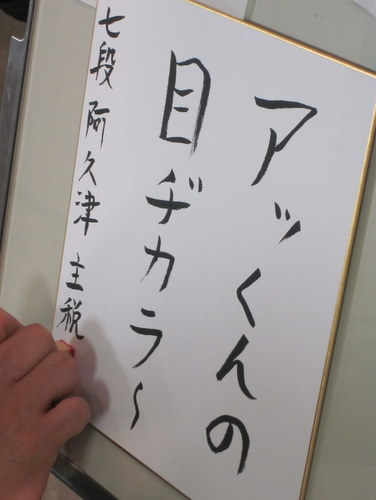 アッくんの
目ヂカラ～
七段 阿久津 主税